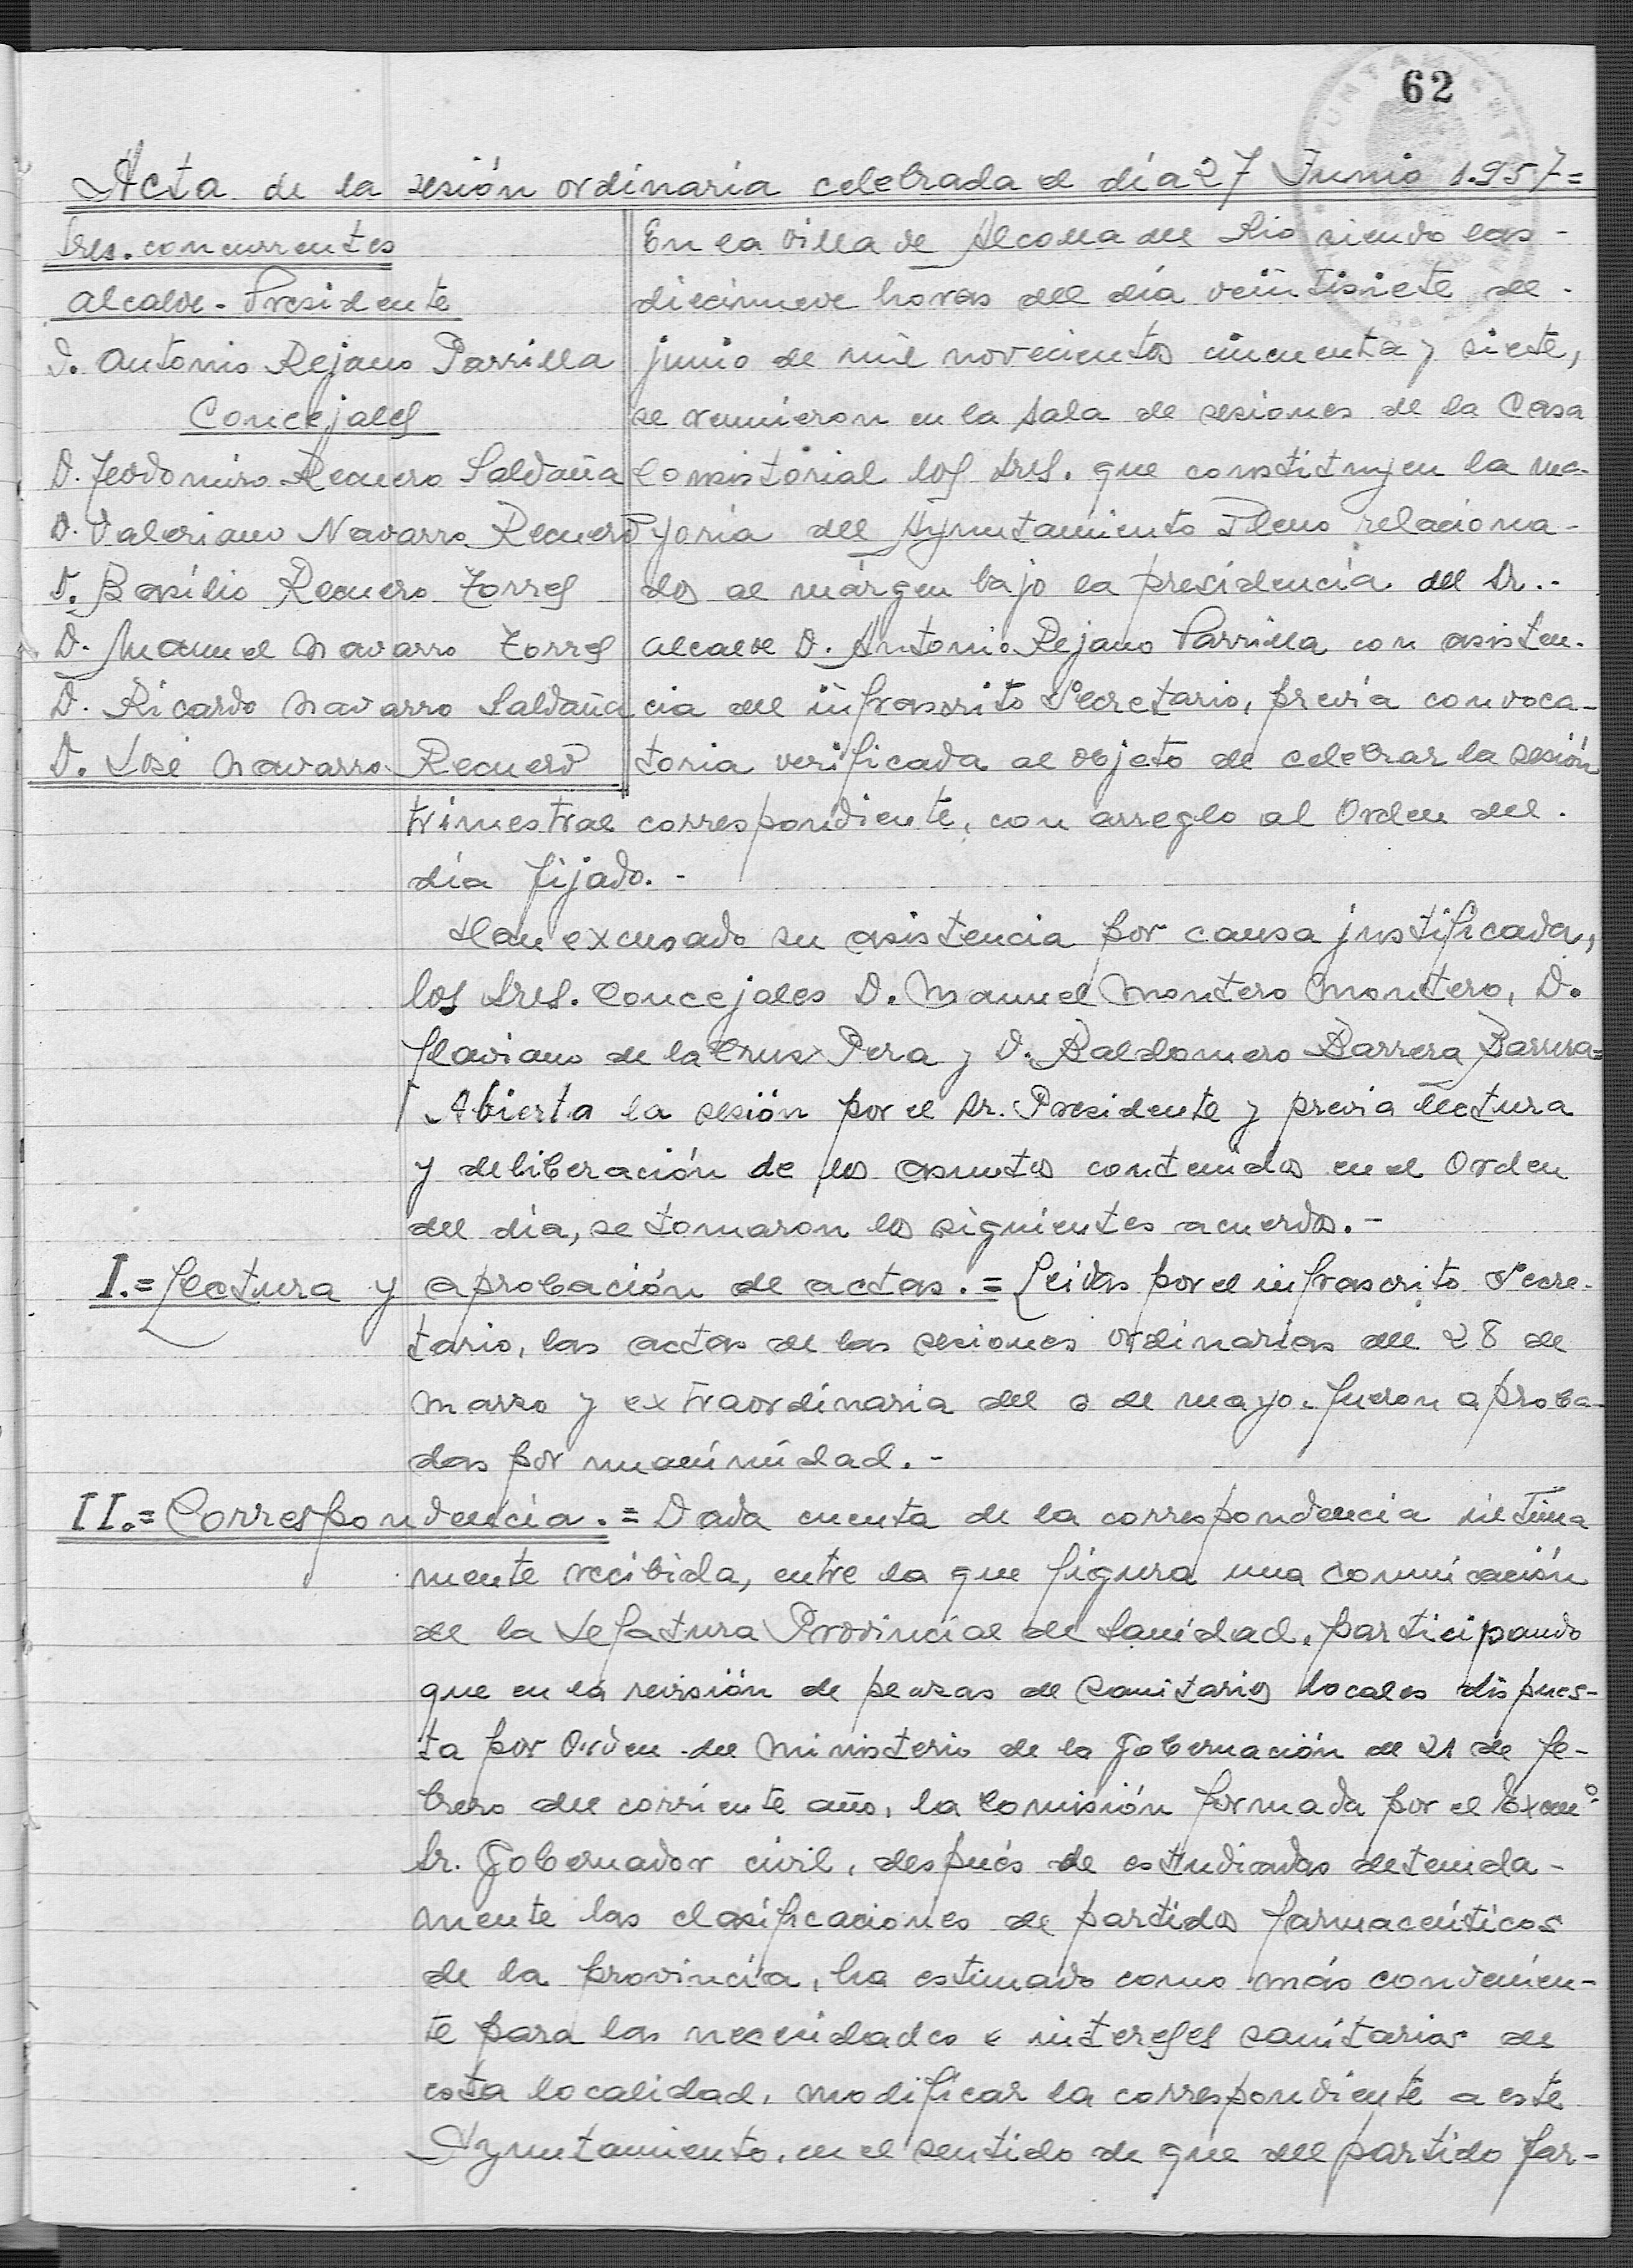 62
Acta de la sesión ordinaria celebrada el día 27 Junio 1.957=
Sres. concurrentes
Alcalde-Presidente
D. Antonio Rejano Parrilla
Concejales
D. Teodomiro Recuero Saldaña
D. Valeriano Navarro Recuero
D. Basilio Recuero Torres
D. Manuel Navarro Torres
D. Ricardo Navarro Saldaña
D. José Navarro Recuero
En la villa de Alcolea del Rio siendo las-
diecinueve horas del día veintisiete de-
junio de mil novecientos cincuenta y siete,
se reunieron en la Sala de sesiones de la Casa
Consistorial los Sres. que constituyen la ma-
yoria del Ayuntamiento Pleno relaciona-
dos al márgen bajo la presidencia del Sr.-
Alcalde D. Antonio Rejano Parrilla con asisten-
cia del infrascrito Secretario, previa convoca-
toria verificada al objeto de celebrar la sesión
trimestral correspondiente, con arreglo al Orden del.
día fijado.-
Han excusado su asistencia por causa justificada,
los Sres. Concejales D. Manuel Montero Montero, D.
Flaviano de la Cruz Pera y D. Baldomero Barrera Barrera=
Abierta la sesión por el Sr. Presidente y previa lectura
y deliberación de los asuntos contenidos en el Orden
del día, se tomaron los siguientes acuerdos.-
I.=Lectura y aprobación de actas.= Leidas por el infrascrito Secre-
tario, las actas de las sesiones ordinarias del 28 de
marzo y extraordinaria del 6 de mayo. fueron aproba-
das por unanimidad.-
II.=Correspondencia.= Dada cuenta de la correspondencia ultima
mente recibida, entre la que figura una comunicación
de la Jefatura Provincial de Sanidad, participando
que en la revisión de plazas de sanitarios locales dispues-
ta por Orden del Ministerio de la Gobernación de 21 de fe-
brero del corriente año, la Comisión formada por el Excmº
Sr. Gobernador civil, después de estudiadas detenida-
mente las clasificaciones de partidos farmacéuticos
de la provincia, ha estimado como más convenien-
te para las necesidades e intereses sanitarios de
esta localidad, modificar la correspondiente a este
Ayuntamiento, en el sentido de que del partido far-